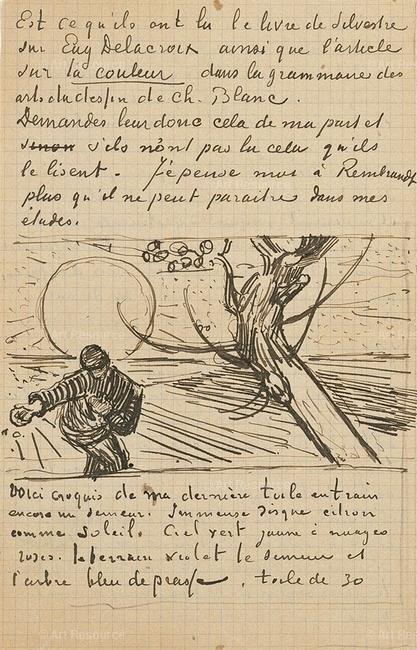 Est ce qu'ils ont lu le livre de Silvestre
sur Eug Delacroix ainsi que l'article
sur la couleur dans la grammaire des
arts du dessin de Ch. Blanc.
Demandes leur donc cela de ma part et
sinon s'ils n'ont pas lu cela qu'ils
le lisent. J'epense moi à Rembrandt
plus qu'il ne peut paraitre dans mes
études.
Voici croquis de ma dernière toile en train
encore un semeur. Immense disque citron
comme soleil. Ciel vert jaune à nuages
roses. le terrain violet le semeur et
l'arbre bleu de prusse. toile de 30
© Art Resource
© Art Resource